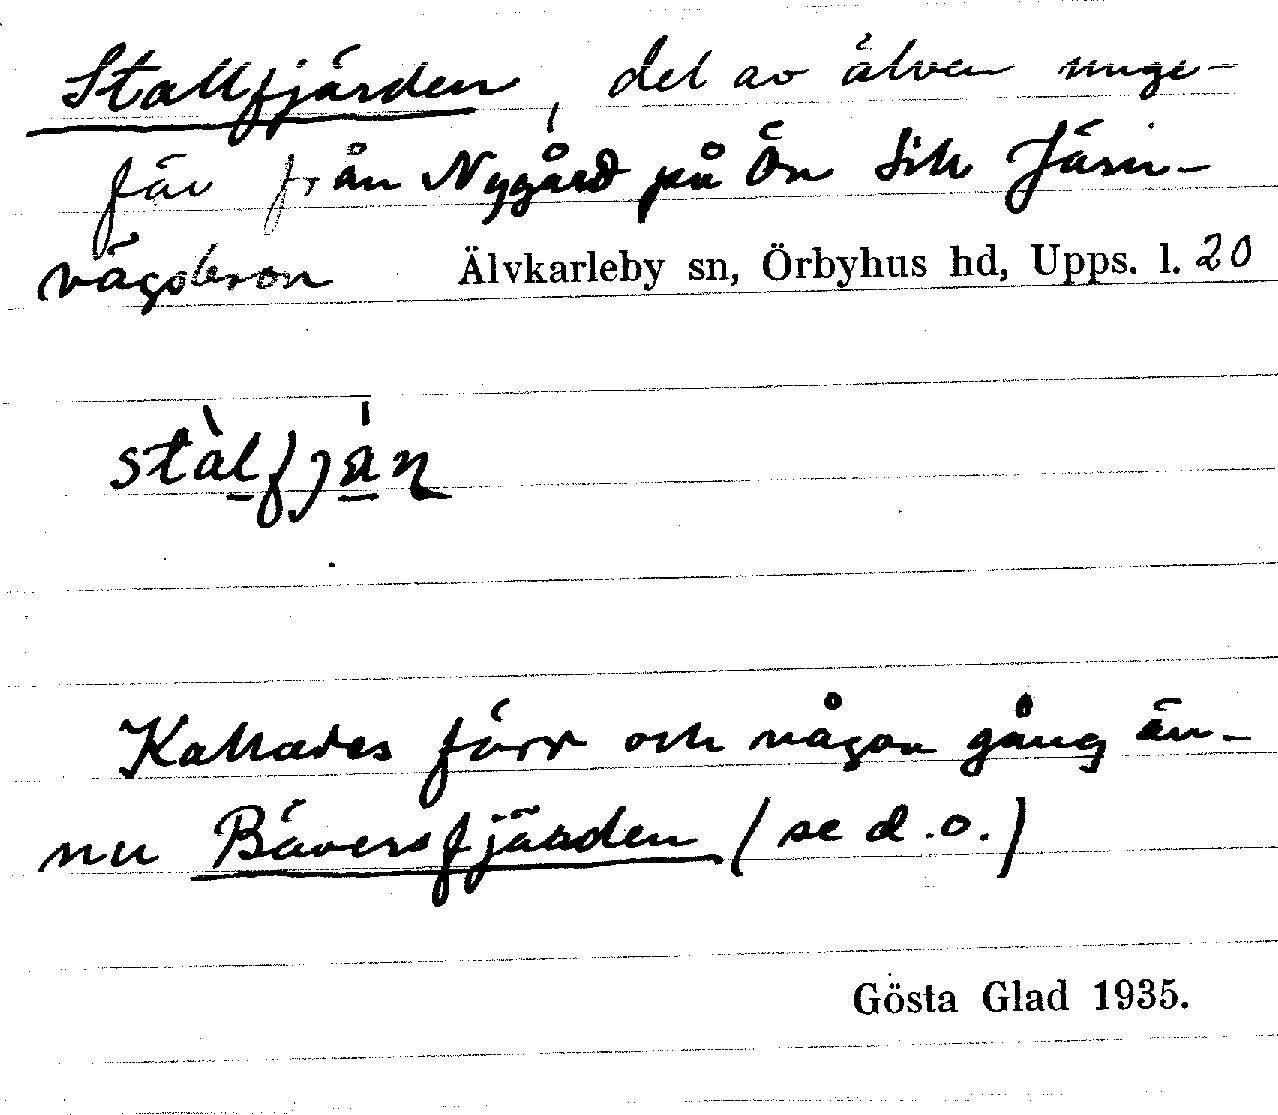 Stallfjärden, del av älven unge-
fär från Nygård på Ön till Järn-
vägsbron Älvkarleby sn, Örbyhus hd, Upps. l. 20
stàlfján
Kallades förr och någon gång än-
nu Bäversfjärden (se d.o.)
Gösta Glad 1935.